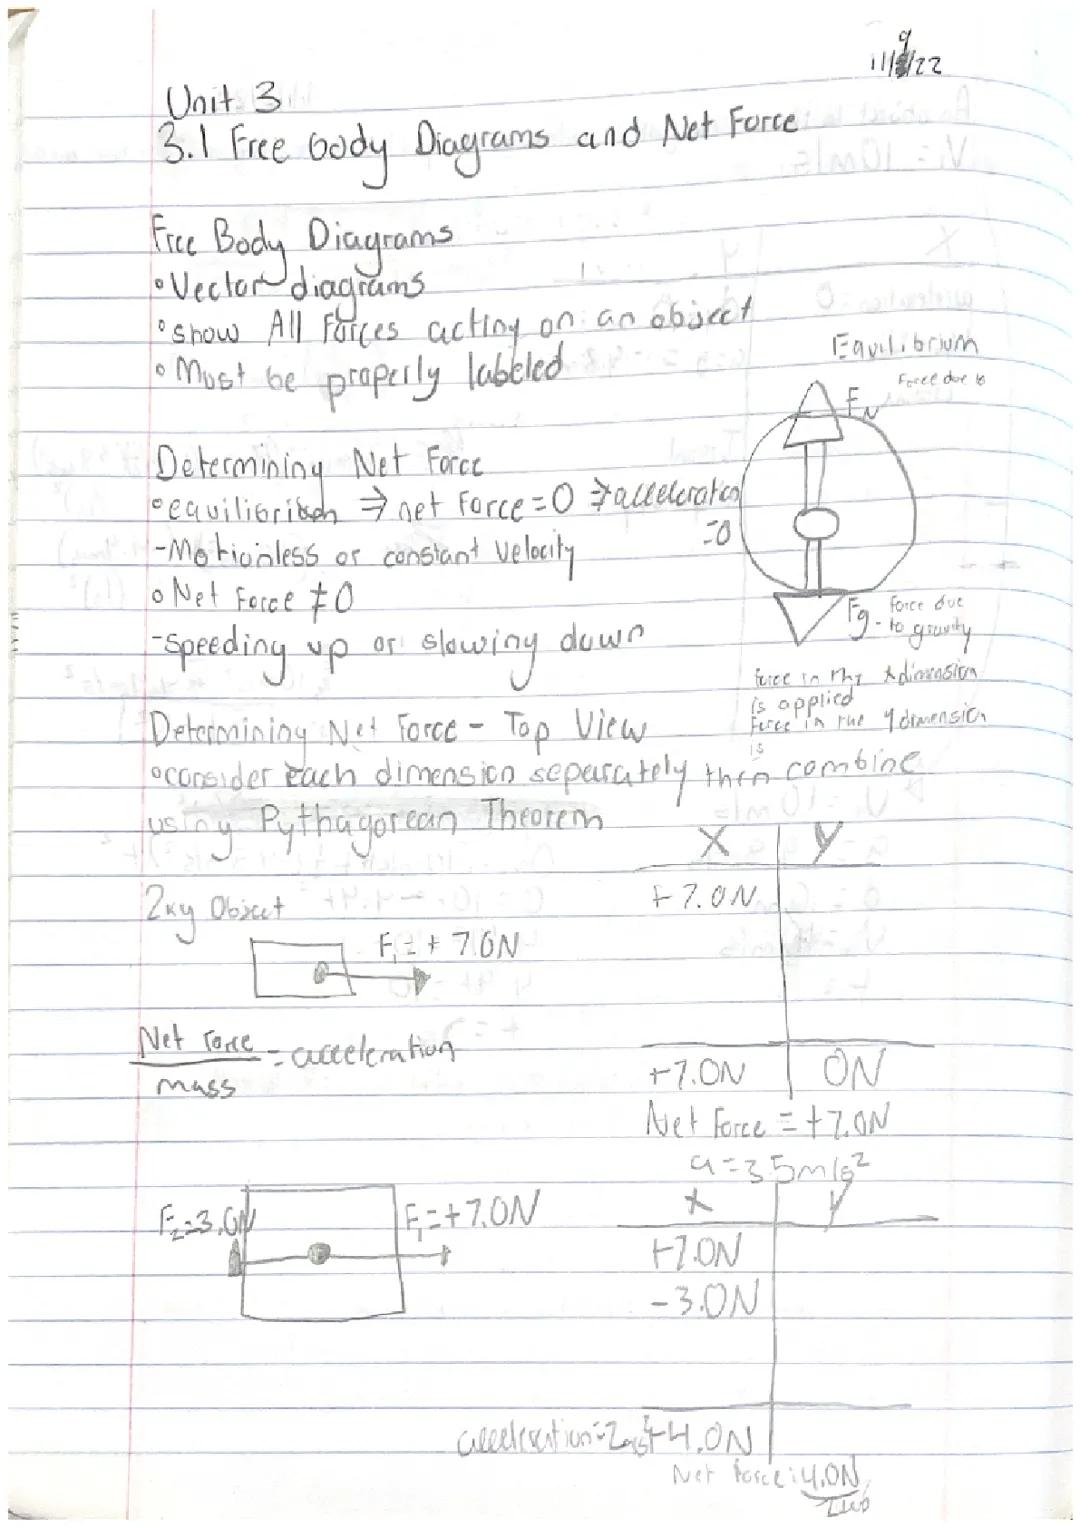 11/9/22
Unit 3
3.1 Free body Diagrams and Net Force
Free Body Diagrams
• Vector diagrams
• show All Forces acting on an object
• Must be properly labeled
Equilibrium
Force due to
FN
Determining Net Force
• equilibrium ⇒ net Force = 0 ⇒ acceleration
=0
- Motionless or constant velocity
• Net Force ≠ 0
- Speeding up or slowing down
Fg - Force due
to gravity
force in the x dimension
is applied
Force in the y dimension
is
Determining Net Force - Top View
• consider each dimension separately then combine
using Pythagorean Theorem
X Y
2kg Object
+7.0N
F₁ = +7.0N
Net Force = acceleration
mass
+7.0N 0N
Net Force = +7.0N
a = 3.5m/s²
X Y
F₂=3.0N F₁=+7.0N
+7.0N
-3.0N
acceleration = +4.0N
Net Force: 4.0N